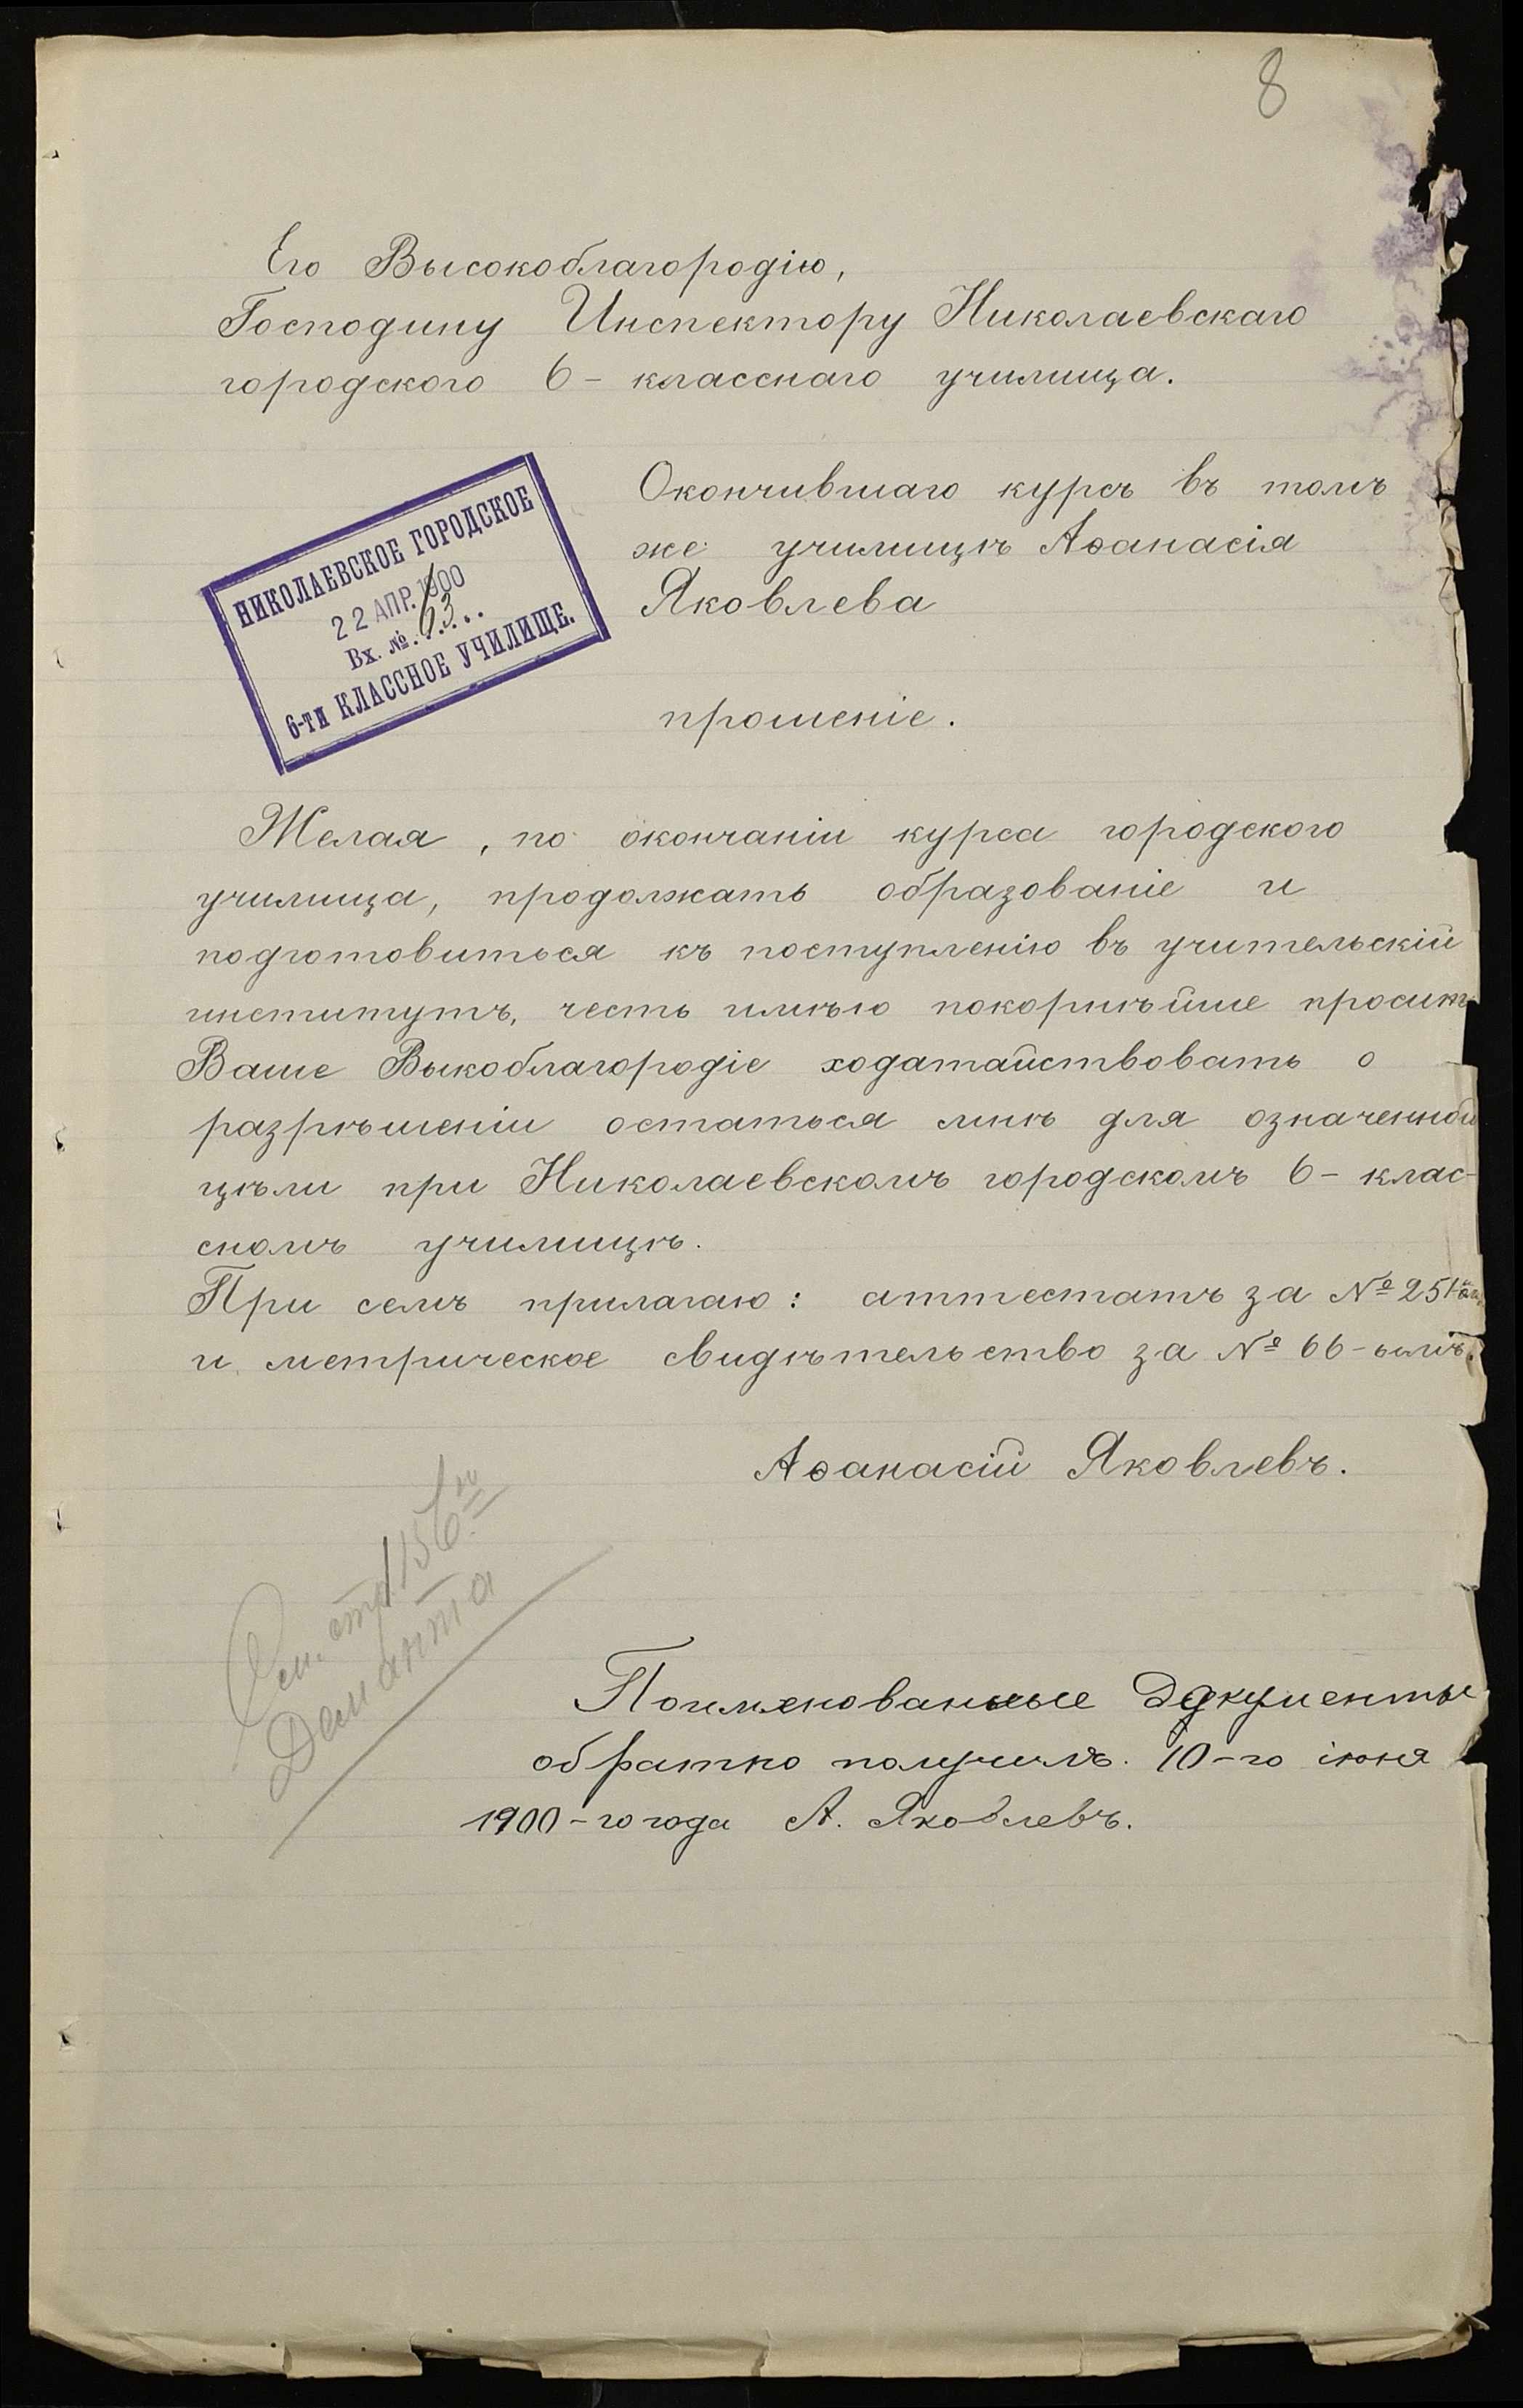 8
Его Высокоблагородію,
Господину Инспектору Николаевскаго
городского 6-класснаго училища.
НИКОЛАЕВСКОЕ ГОРОДСКОЕ
22 АПР. 1900
Вх. №. 63...
6-ти КЛАССНОЕ УЧИЛИЩЕ.
Окончившаго курсъ въ томъ
же училищѣ Аѳанасія
Яковлева
прошеніе.
Желая, по окончаніи курса городского
училища, продолжать образованіе и
подготовиться къ поступленію въ учительскій
институтъ, честь имѣю покорнѣйше просить
Ваше Выкоблагородіе ходатайствовать о
разрѣшеніи остаться мнѣ для означенной
цѣли при Николаевскомъ городскомъ 6-клас-
сномъ училищѣ.
При семъ прилагаю: аттестатъ за № 251
и метрическое свидѣтельство за № 66-ымъ.
Аѳанасій Яковлевъ.
См. стр. 156
Поименованные документы
обратно получилъ. 10-го іюня
1900-го года А. Яковлевъ.